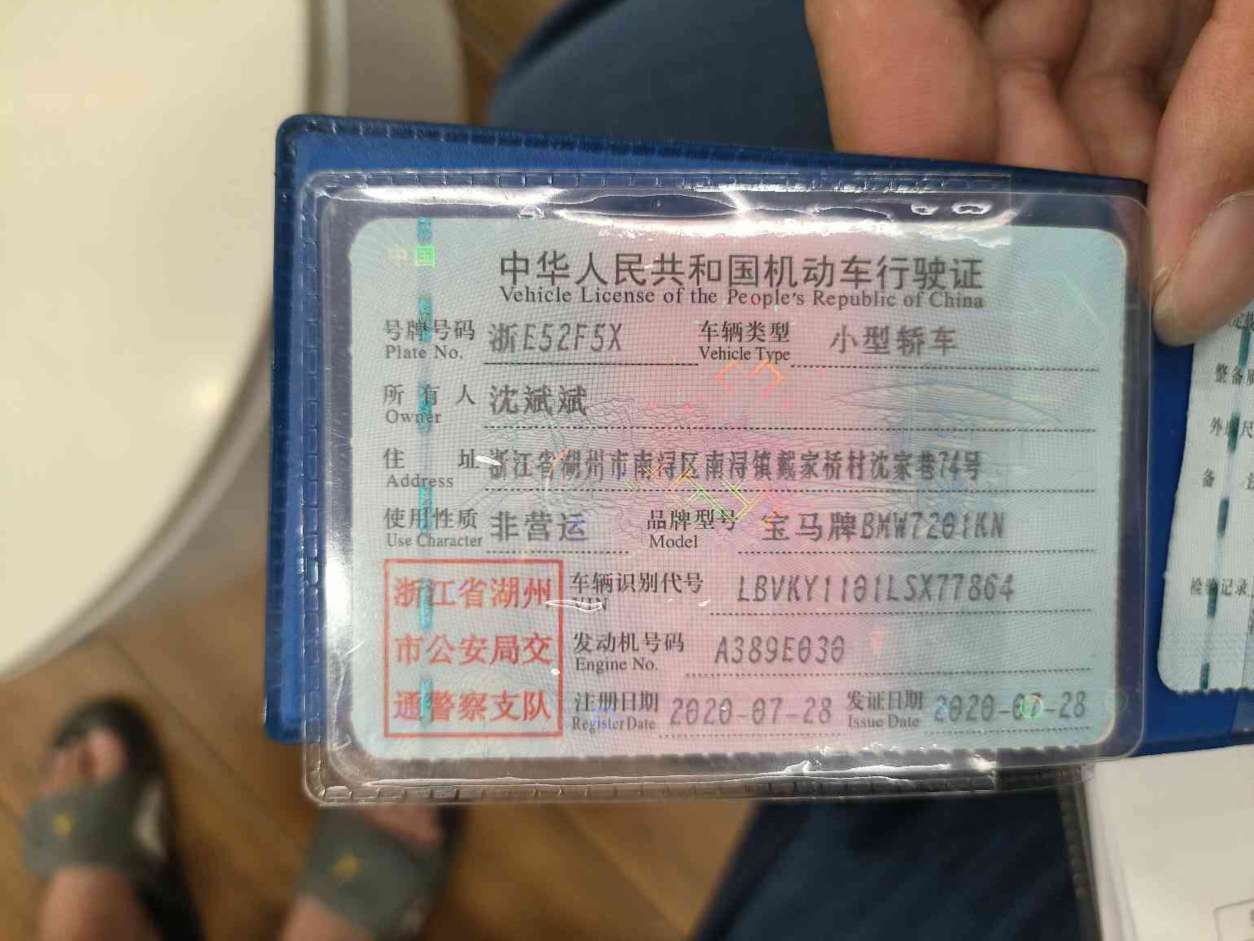 中国
中华人民共和国机动车行驶证
Vehicle License of the People's Republic of China
号牌号码 浙E52F5X 车辆类型 小型轿车
Plate No. Vehicle Type
所有人 沈斌斌
Owner
住址 浙江省湖州市南浔区南浔镇戴家桥村沈家巷74号
Address
使用性质 非营运 品牌型号 宝马牌BMW7201KN
Use Character Model
浙江省湖州
市公安局交
通警察支队
车辆识别代号 LBVKY1101LSX77864
VIN
发动机号码 A389E030
Engine No.
注册日期 2020-07-28 发证日期 2020-07-28
Register Date Issue Date
整备
外
备
检验记录